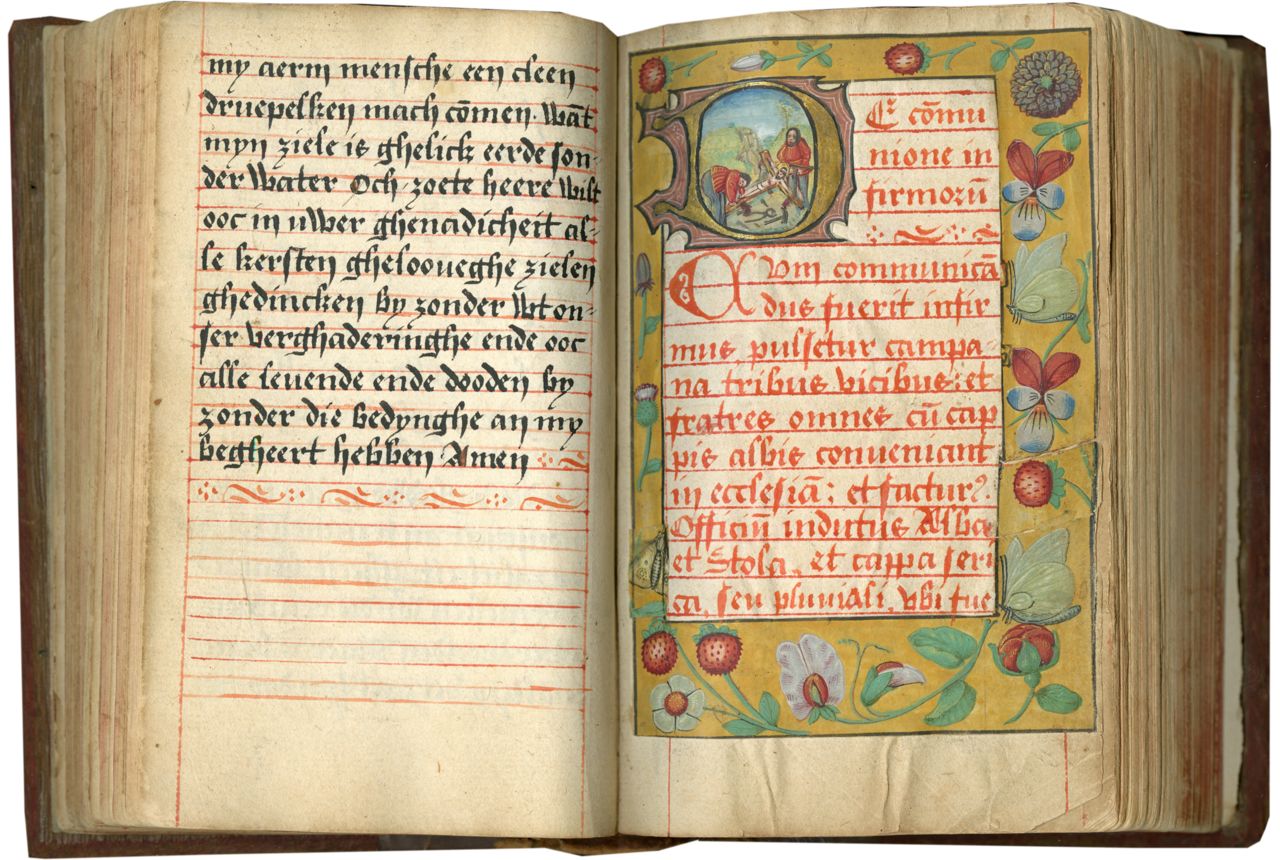 my aerm mensche een cleen
druepelken mach cōmen. wāt
myn ziele is ghelick eerde son-
der water Och zoete heere wilt
ooc in uwer ghenadicheit al-
le kersten ghelooueghe zielen
ghedincken by zonder wt on-
ser verghaderinghe ende ooc
alle levende ende dooden by
zonder die bedynghe an my
begheert hebben Amen
DE cōmu
nione in
firmorū
CVm communicā
dus fuerit infir
mus, pulsetur campa-
na tribus vicibus: et
fratres omnes cū cap
pis albis conveniant
in ecclesiā: et factur⁊.
Officiū indutus Alba
et Stola, et cappa seri
ca, seu pluviali, vbi fue